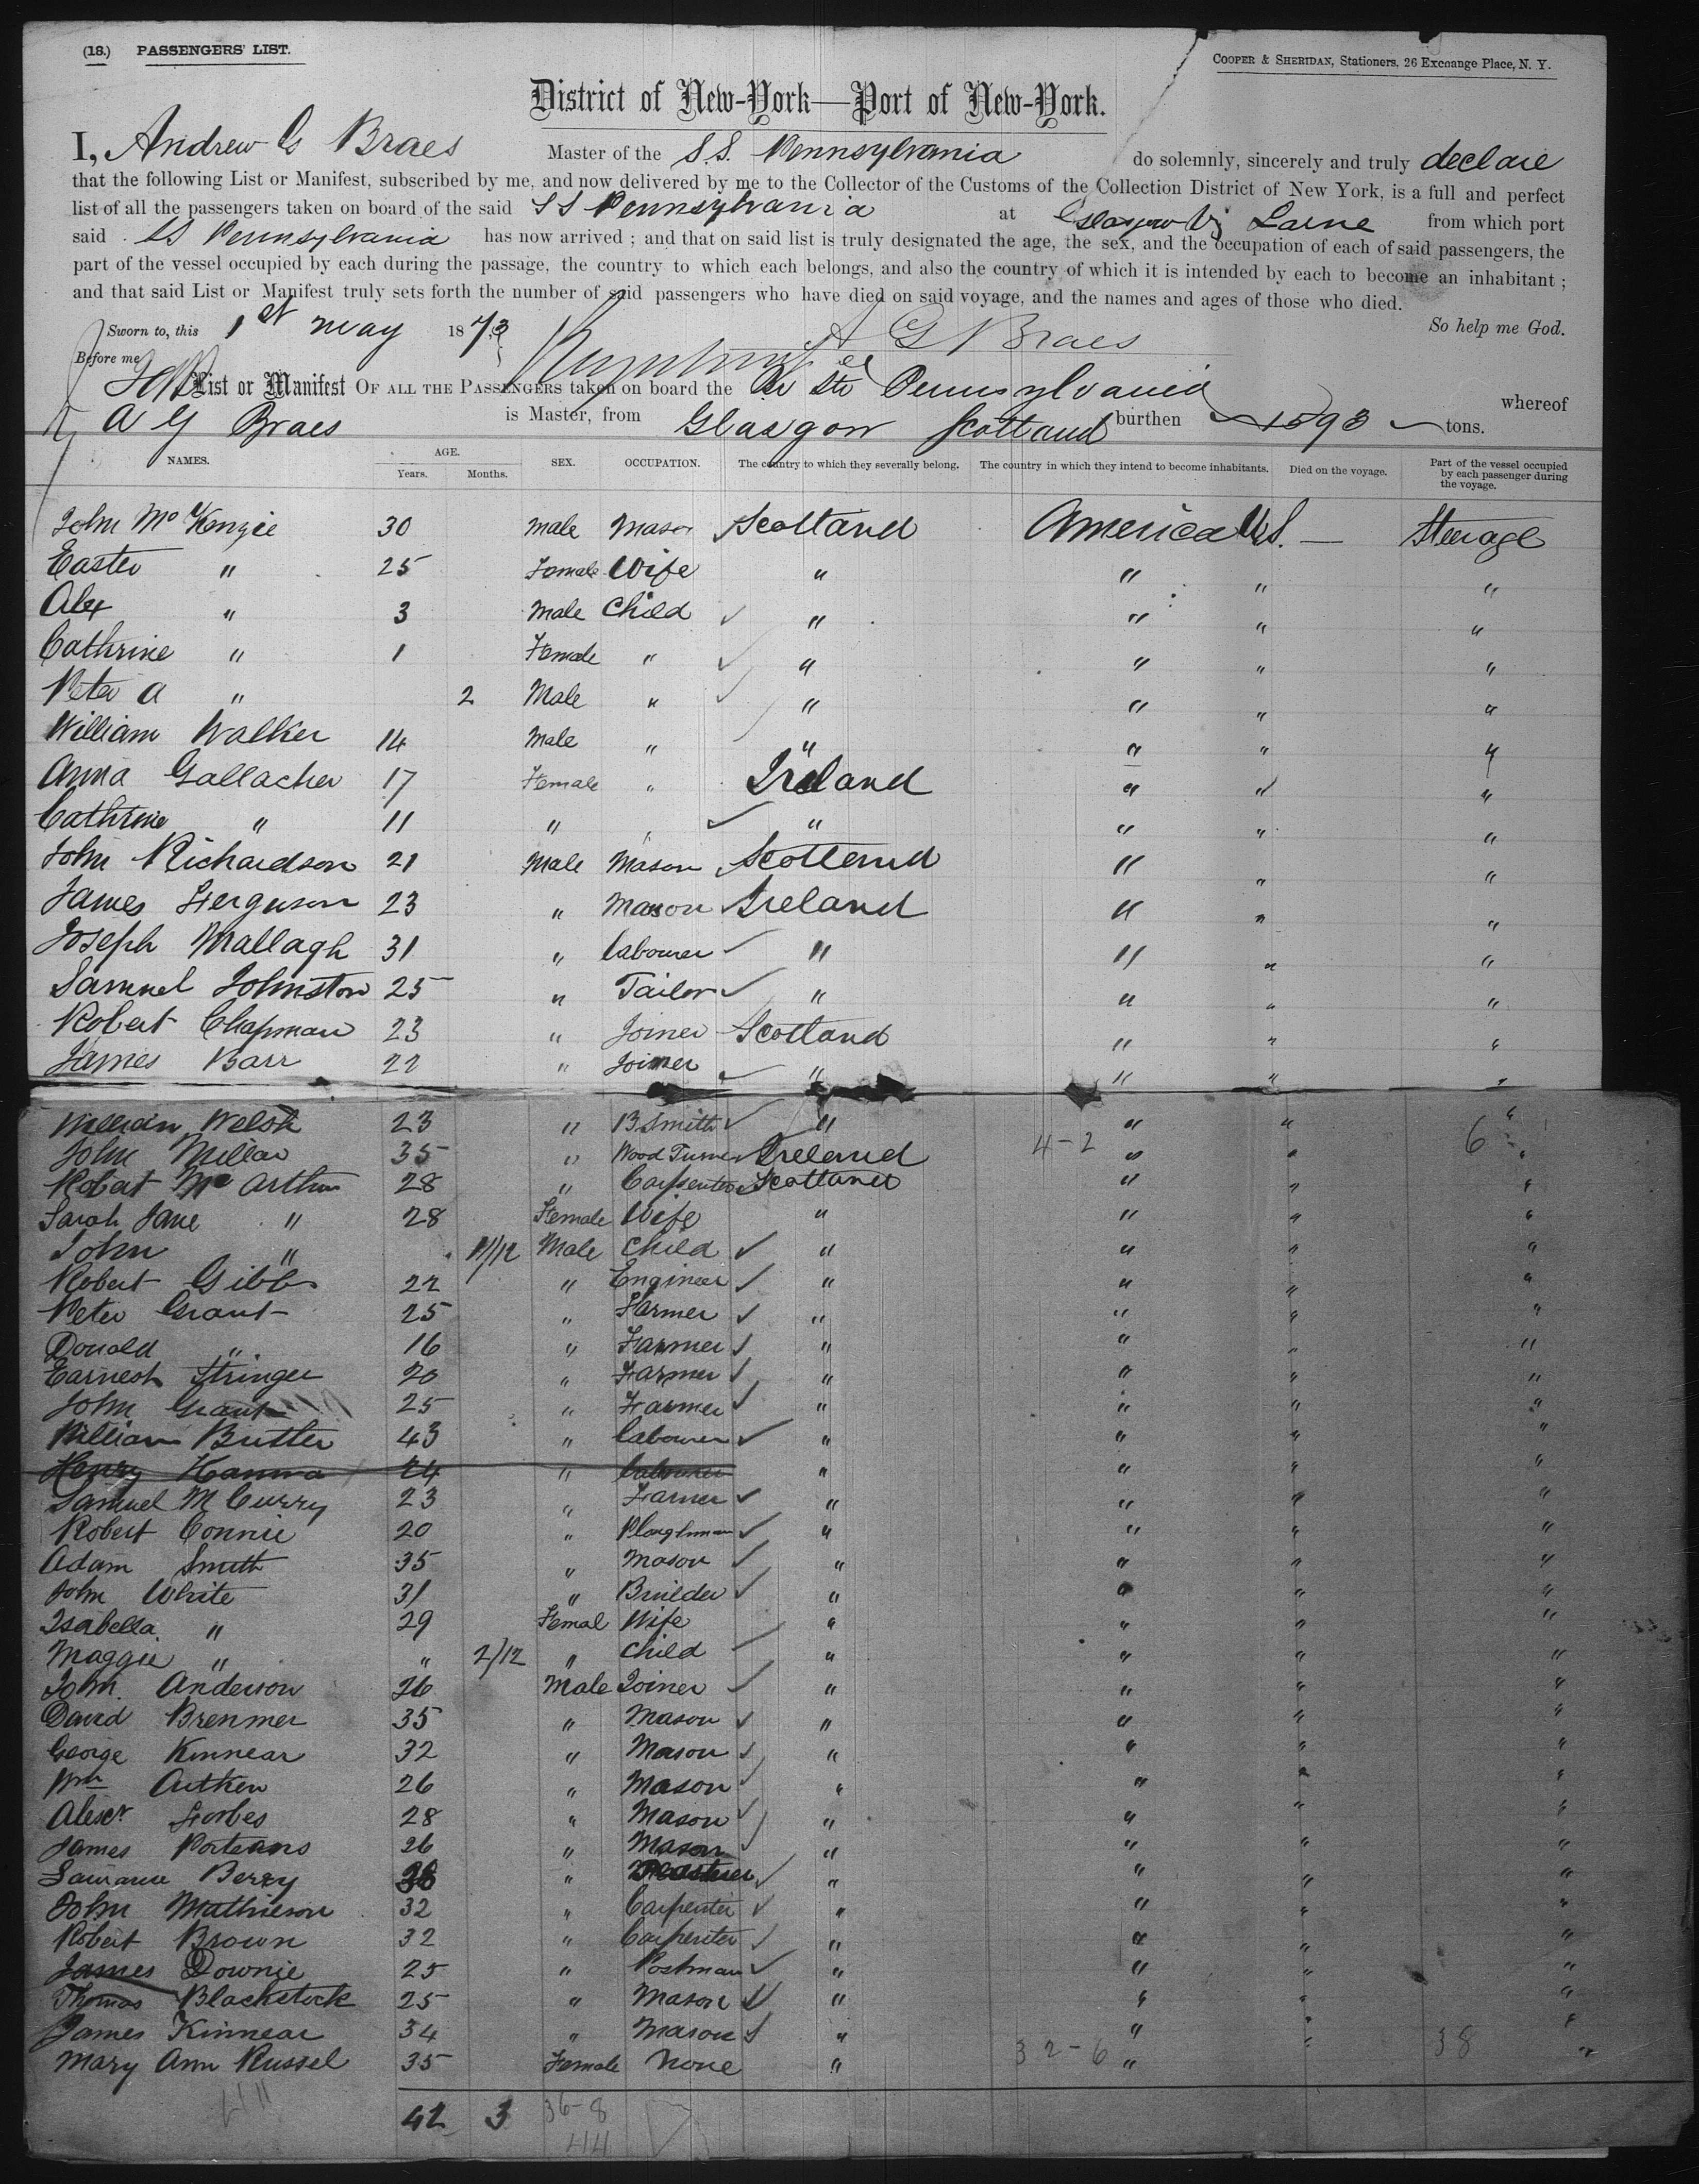 (18.) PASSENGERS' LIST.
COOPER & SHERIDAN, Stationers, 26 Exchange Place, N. Y.
District of New-York—Port of New-York.
I, Andrew G Braes Master of the S.S. Pennsylvania do solemnly, sincerely and truly declare
that the following List or Manifest, subscribed by me, and now delivered by me to the Collector of the Customs of the Collection District of New York, is a full and perfect
list of all the passengers taken on board of the said SS Pennsylvania at Glasgow Larne from which port
said SS Pennsylvania has now arrived ; and that on said list is truly designated the age, the sex, and the occupation of each of said passengers, the
part of the vessel occupied by each during the passage, the country to which each belongs, and also the country of which it is intended by each to become an inhabitant ;
and that said List or Manifest truly sets forth the number of said passengers who have died on said voyage, and the names and ages of those who died.
Sworn to, this 1st May 1873 A G Braes So help me God.
Before me
List or Manifest OF ALL THE PASSENGERS taken on board the Pennsylvania whereof
A G Braes is Master, from Glasgow Scotland burthen 1593 tons.
NAMES. AGE. Years. Months. SEX. OCCUPATION. The country to which they severally belong. The country in which they intend to become inhabitants. Died on the voyage. Part of the vessel occupied by each passenger during the voyage.
John McKenzie 30 Male Mason Scotland America U.S. — Steerage
Easter " 25 Female Wife " " " "
Alex " 3 Male Child " " " "
Cathrine " 1 Female " " " " "
Peter A " 2 Male " " " " "
William Walker 14 Male " " " " "
Anna Gallacher 17 Female " Ireland " " "
Cathrine " 11 " " " " " "
John Richardson 21 Male Mason Scotland " " "
James Ferguson 23 " Mason Ireland " " "
Joseph Mallagh 31 " Labourer " " " "
Samuel Johnston 25 " Tailor " " " "
Robert Chapman 23 " Joiner Scotland " " "
James Barr 22 " Joiner " " " "
William Welsh 23 " B Smith " " " "
John Millar 35 " Wood Turner Ireland 4-2 " " 6 "
Robert McArthur 28 " Carpenter Scotland " " "
Sarah Jane " 28 Female Wife " " " "
John " 11/12 Male Child " " " "
Robert Gibb 22 " Engineer " " " "
Peter Grant 25 " Farmer " " " "
Donald " 16 " Farmer " " " "
Earnest Stringer 20 " Farmer " " " "
John Grant 25 " Farmer " " " "
William Butler 43 " Labourer " " " "
Henry Hanna 24 " Labourer " " " "
Samuel McCurry 23 " Farmer " " " "
Robert Connie 20 " Ploughman " " " "
Adam Smith 35 " Mason " " " "
John White 31 " Builder " " " "
Isabella " 29 Femal Wife " " " "
Maggie " " 2/12 " Child " " " "
John Anderson 26 Male Joiner " " " "
David Bremner 35 " Mason " " " "
George Kinnear 32 " Mason " " " "
Wm Aitken 26 " Mason " " " "
Alexr Forbes 28 " Mason " " " "
James Porteans 26 " Mason " " " "
Berry " " " " "
John Mathieson 32 " Carpenter " " " "
Robert Brown 32 " Carpenter " " " "
James Downie 25 " Postman " " " "
Thomas Blackstock 25 " Mason " " " "
James Kinnear 34 " Mason " " " "
Mary Ann Russel 35 Female None " 32-6 " 38 "
42 3 36-8